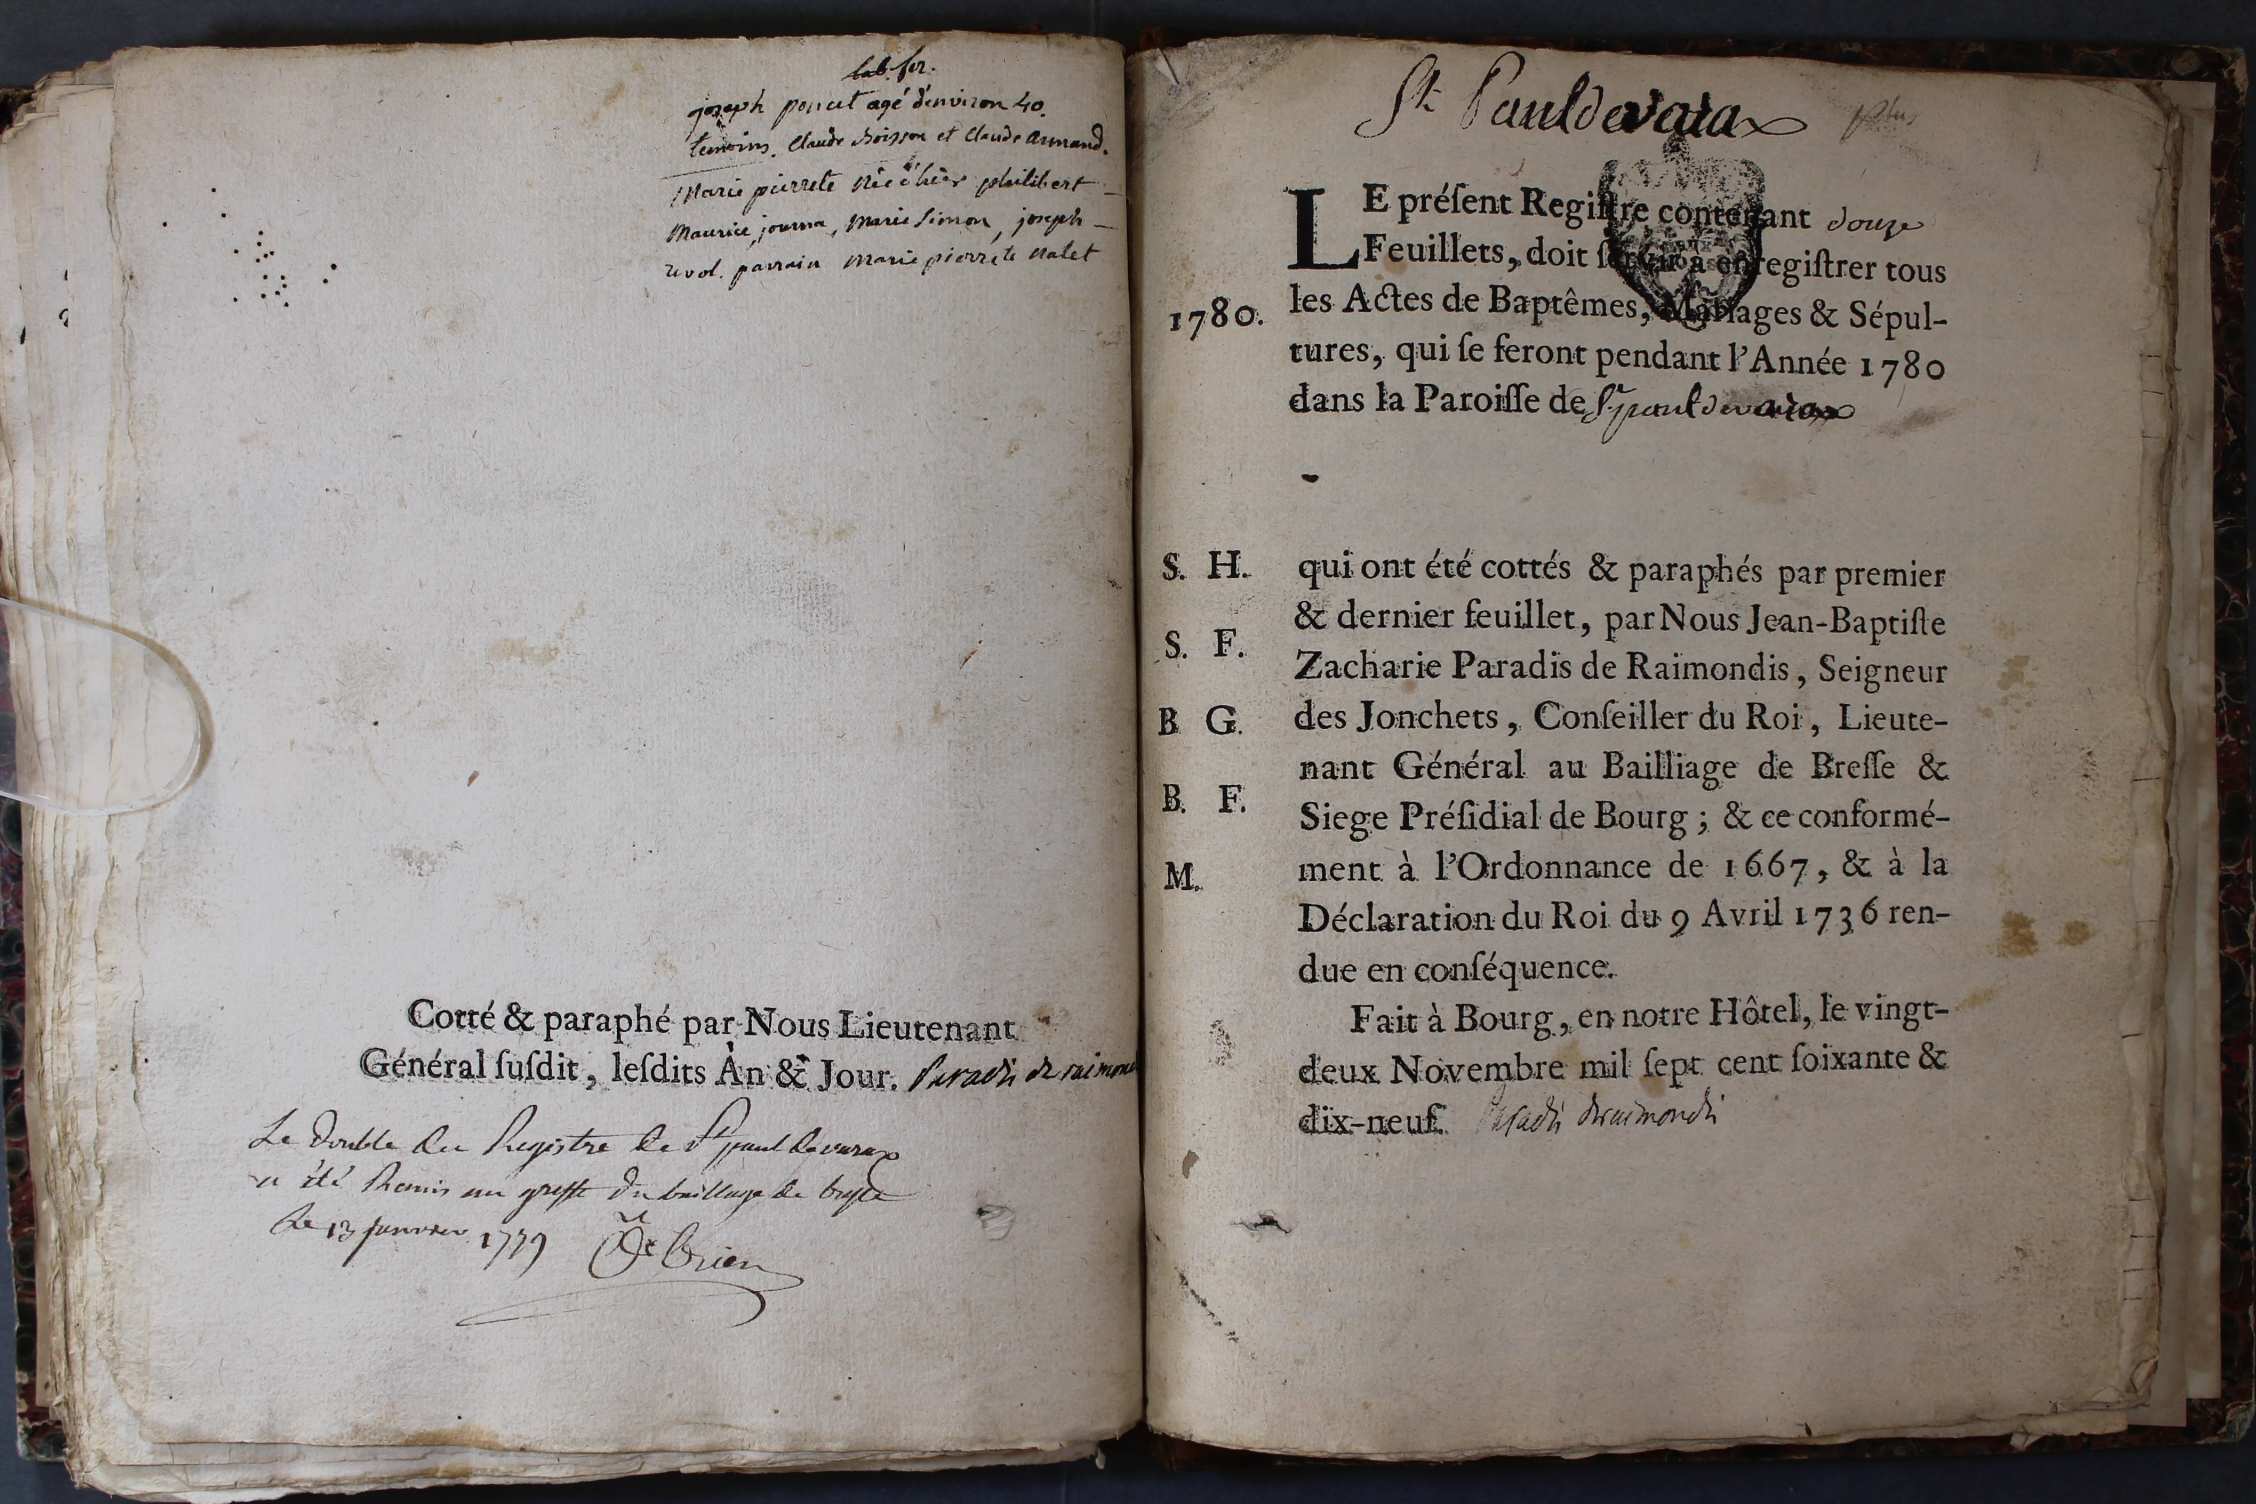 lab. fer.
joseph poncet agé d'environ 40.
temoins. Claude Boisson et Claude armand.
Marie pierrete née hier philibert
Maurice journa, Marie Simon, joseph
revol. parrain Marie pierrete Nalet
Cotté & paraphé par Nous Lieutenant
Général suſdit, leſdits An & Jour. Paradis de raimondis
Le double du Registre de St paul de varax
a été Remis au greffe du bailliage de bresse
Le 13 janvier 1779
St Paul de varax
LE préſent Regiſtre contenant douze
Feuillets, doit ſervir à enregiſtrer tous
1780. les Actes de Baptêmes, Mariages & Sépul-
tures, qui ſe feront pendant l'Année 1780
dans la Paroiſſe de St paul de varax
S. H. qui ont été cottés & paraphés par premier
& dernier feuillet, par Nous Jean-Baptiſte
S. F. Zacharie Paradis de Raimondis, Seigneur
B G. des Jonchets, Conſeiller du Roi, Lieute-
nant Général au Bailliage de Breſſe &
B. F. Siege Préſidial de Bourg; & ce conformé-
M. ment à l'Ordonnance de 1667, & à la
Déclaration du Roi du 9 Avril 1736 ren-
due en conſéquence.
Fait à Bourg, en notre Hôtel, le vingt-
deux Novembre mil ſept cent ſoixante &
dix-neuf. Paradis de raimondis